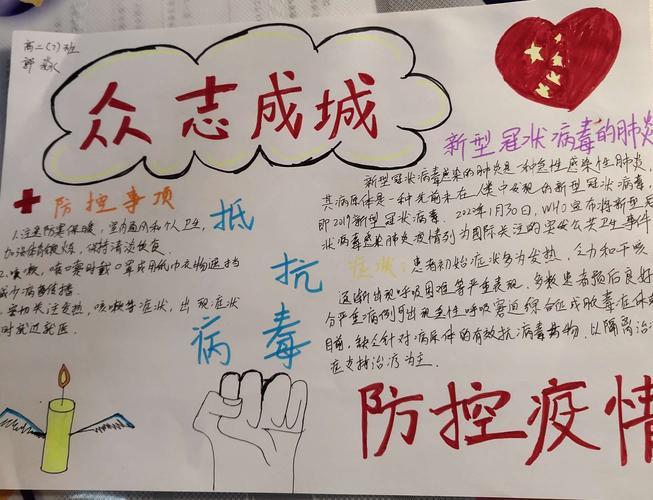 高二(7)班
郭
众志成城
新型冠状病毒的肺炎
新型冠状病毒感染的肺炎是一种急性感染性肺炎,
其病原体是一种先前未在人类中发现的新型冠状病毒,
即2019新型冠状病毒. 2020年1月30日, WHO宣布将新型冠
状病毒感染肺炎疫情列为国际关注的突发公共卫生事件
症状:患者初始症状多为发热、乏力和干咳
逐渐出现呼吸困难等严重表现. 多数患者预后良好
分严重病例可出现急性呼吸窘迫综合征或脓毒症休
目前,缺乏针对病原体的有效抗病毒药物. 以隔离治
症支持治疗为主.
防控事项
1.注意防寒保暖,室内通风和个人卫生,
加强体育锻炼,保持清淡饮食.
2.咳嗽,喷嚏时戴口罩或用纸巾衣物遮挡
减少病毒传播.
密切关注发热,咳嗽等症状,出现症状
时就近就医.
抵
抗
病毒
防控疫情